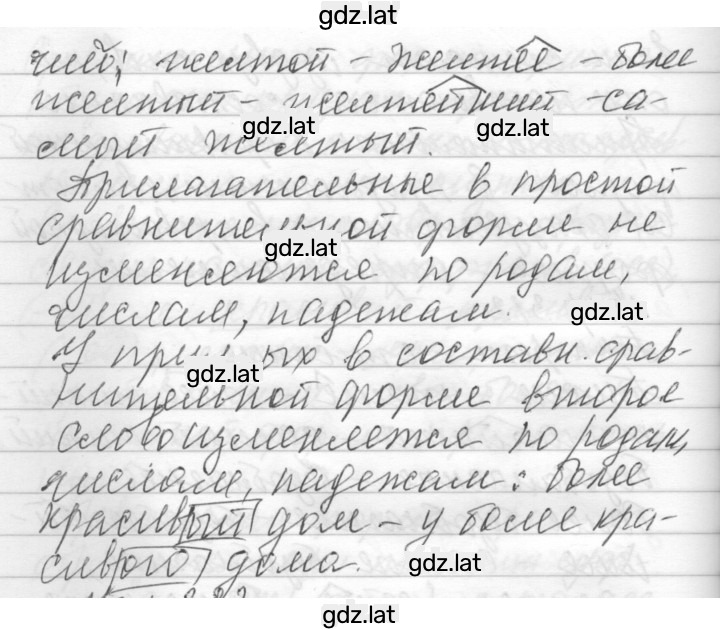 gdz.lat
чий; желтой – желтее – более
желтый – желтейший – са-
gdz.lat
gdz.lat
мый желтый.
Прилагательные в простой
сравнительной форме не
gdz.lat
изменяются по родам,
числам, падежам.
gdz.lat
У прил-ых в составн. срав-
gdz.lat
нительной форме второе
слово изменяется по родам,
числам, падежам: более
красивый дом – у более кра-
сивого дома.
gdz.lat
gdz.lat